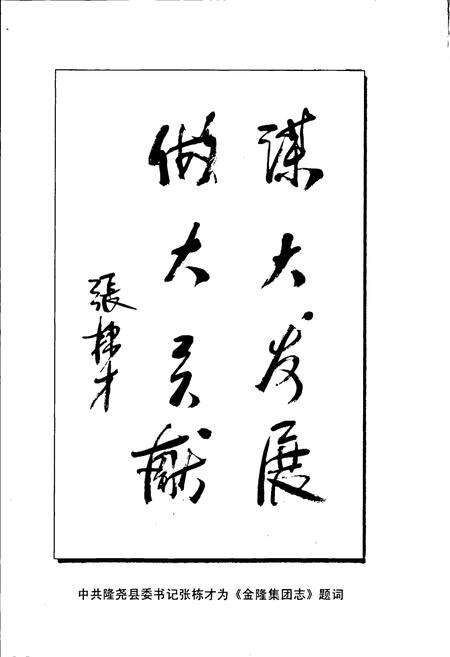 谋大发展
做大贡献
張栋才
中共隆尧县委书记张栋才为《金隆集团志》题词